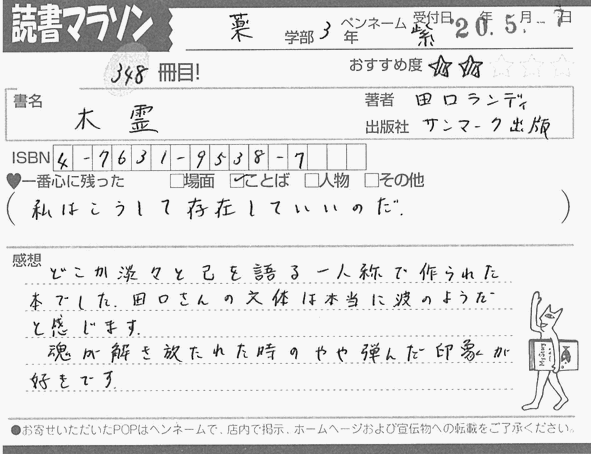 読書マラソン
薬 学部 3 年 ペンネーム 紫 受付日 '20.5.-7 年 月 日
348 冊目! おすすめ度 ☆☆☆☆☆
書名 木霊
著者 田口ランディ
出版社 サンマーク出版
ISBN 4-7631-9538-7
♥一番心に残った □場面 ☑ことば □人物 □その他
(私はこうして存在していいのだ.)
感想
どこか淡々と己を語る一人称で作られた
本でした.田口さんの文体は本当に波のようだ
と感じます.
魂が解き放たれた時のやや弾んだ印象が
好きです.
●お寄せいただいたPOPはペンネームで、店内で掲示、ホームページおよび宣伝物への転載をご了承ください。